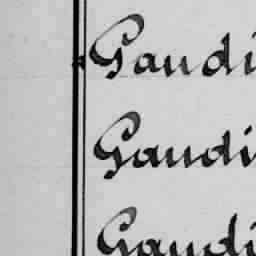 Gaudi
Gaudi
Gaudi